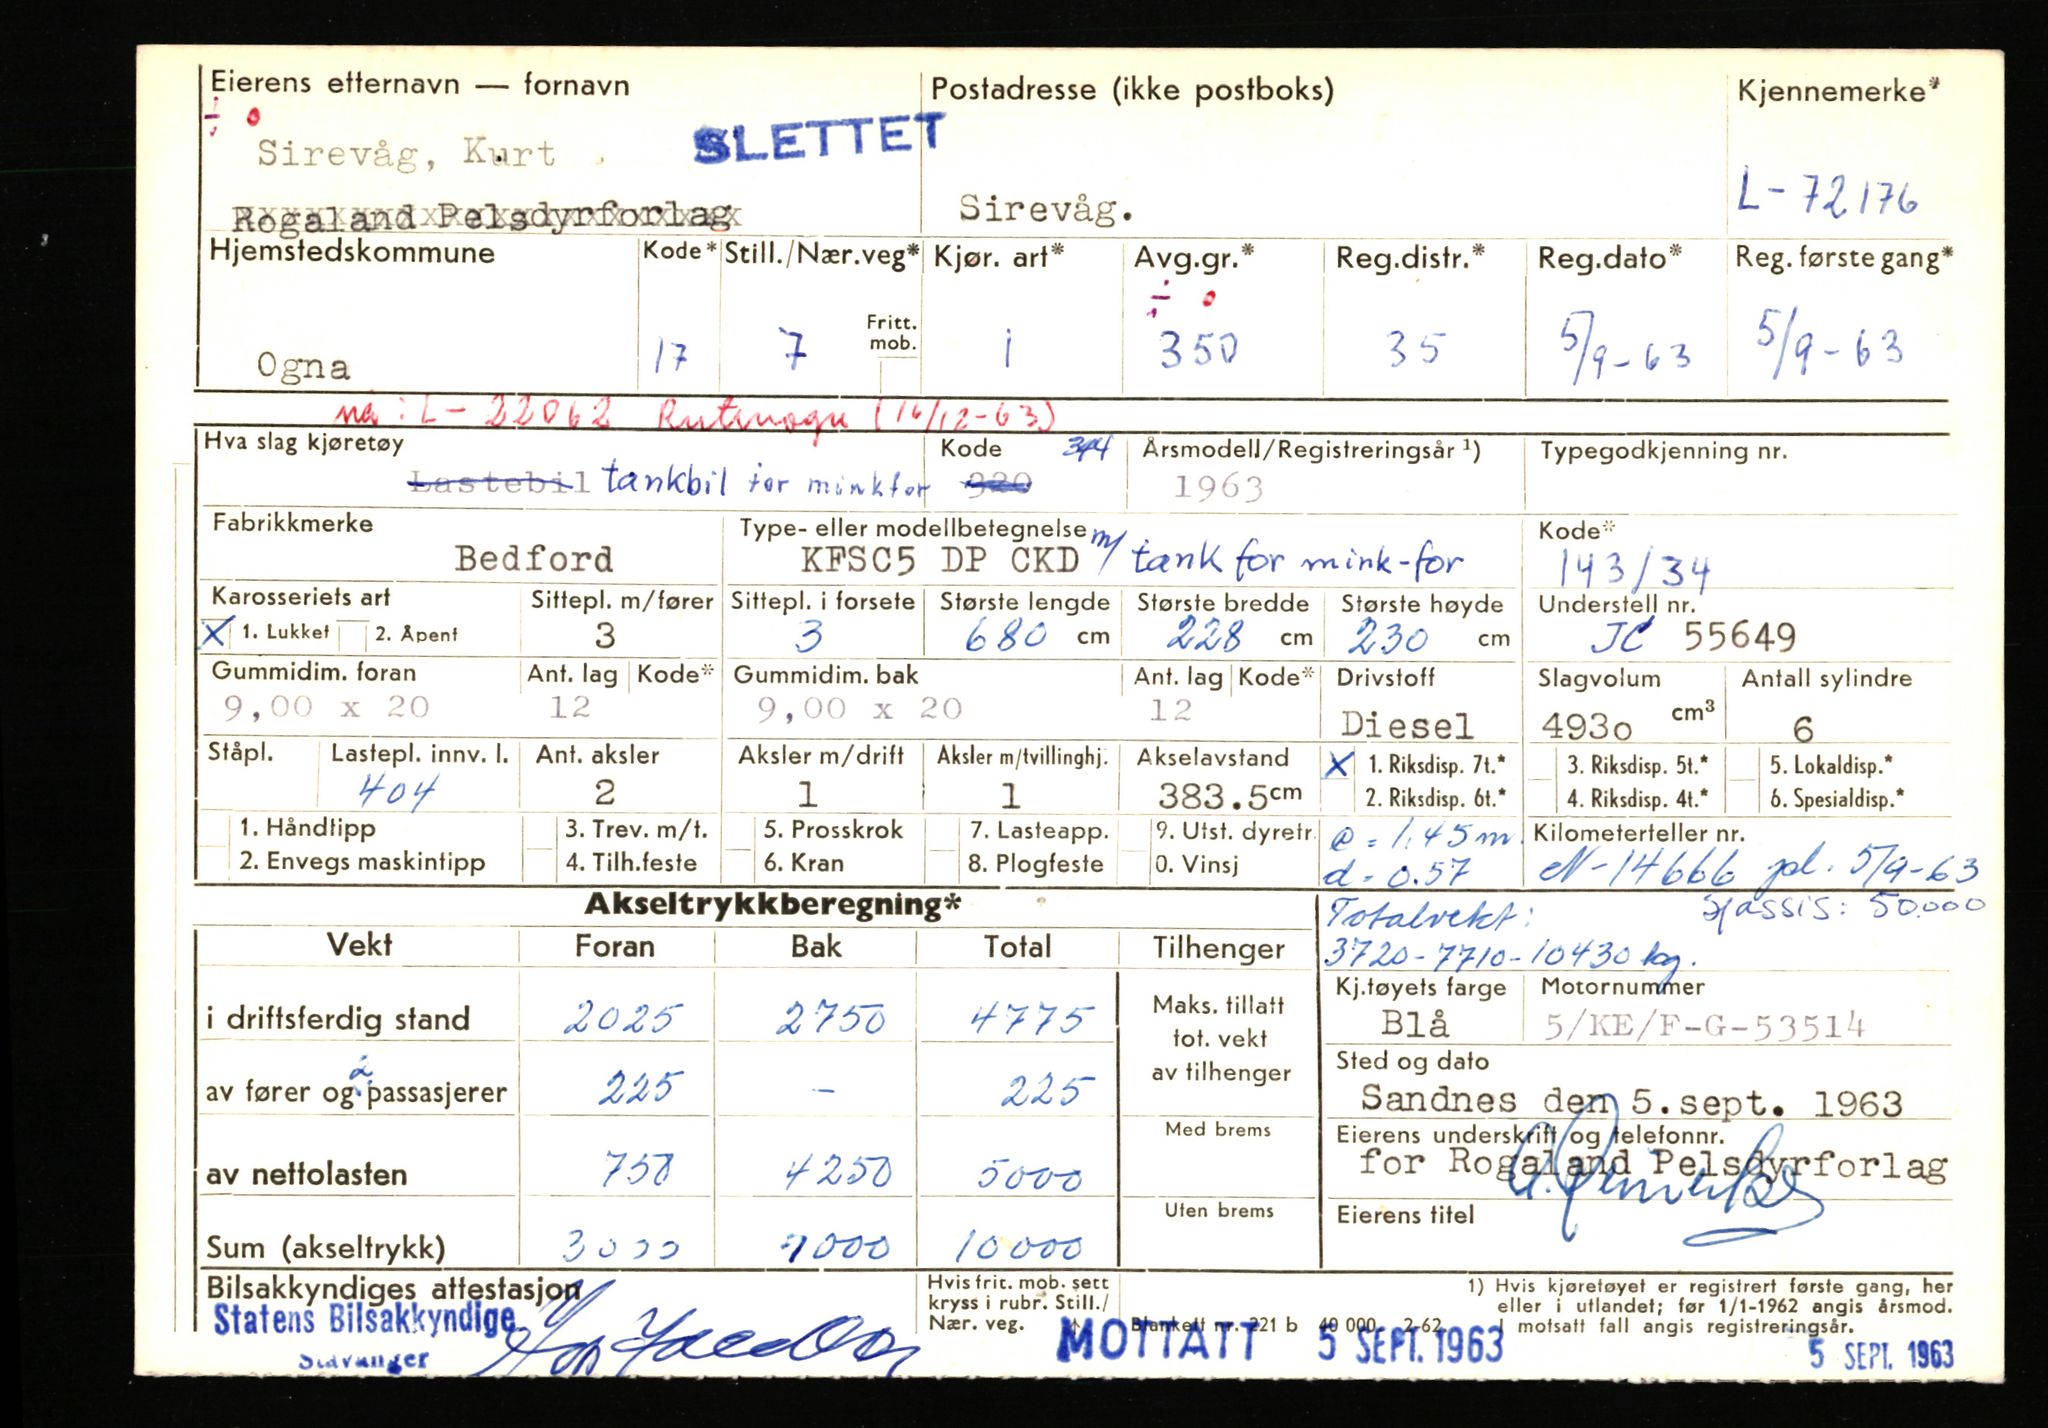 Eierens etternavn — fornavn
Postadresse (ikke postboks)
Kjennemerke*
Sirevåg, Kurt
SLETTET
Rogaland Pelsdyrforlag
Sirevåg.
L-72176
Hjemstedskommune Kode* Still./Nær.veg* Kjør. art* Avg.gr.* Reg.distr.* Reg.dato* Reg. første gang*
Fritt. mob.
Ogna 17 7 1 350 35 5/9-63 5/9-63
nå: L-22062 (16/12-63)
Hva slag kjøretøy Kode 344 Årsmodell/Registreringsår ¹) Typegodkjenning nr.
Lastebil tankbil for minkfor 920 1963
Fabrikkmerke Type- eller modellbetegnelse Kode*
Bedford KFSC5 DP CKD m/ tank for mink-for 143/34
Karosseriets art Sittepl. m/fører Sittepl. i forsete Største lengde Største bredde Største høyde Understell nr.
X 1. Lukket 2. Åpent 3 3 680 cm 228 cm 230 cm JC 55649
Gummidim. foran Ant. lag Kode* Gummidim. bak Ant. lag Kode* Drivstoff Slagvolum Antall sylindre
9,00 x 20 12 9,00 x 20 12 Diesel 493o cm³ 6
Ståpl. Lastepl. innv. l. Ant. aksler Aksler m/drift Aksler m/tvillinghj. Akselavstand X 1. Riksdisp. 7t.* 3. Riksdisp. 5t.* 5. Lokaldisp.*
404 2 1 1 383.5cm 2. Riksdisp. 6t.* 4. Riksdisp. 4t.* 6. Spesialdisp.*
1. Håndtipp 3. Trev. m/t. 5. Prosskrok 7. Lasteapp. 9. Utst. dyretr. e = 1,45 m. Kilometerteller nr.
2. Envegs maskintipp 4. Tilh.feste 6. Kran 8. Plogfeste 0. Vinsj d = 0.57 N-14666 pl. 5/9-63
Akseltrykkberegning* Totalvekt: Sjassis: 50.000
Vekt Foran Bak Total Tilhenger 3720-7710-10430 kg.
Kj.tøyets farge Motornummer
i driftsferdig stand 2025 2750 4775 Maks. tillatt tot. vekt av tilhenger Blå 5/KE/F-G-53514
Sted og dato
av fører og 2 passasjerer 225 – 225 Sandnes den 5.sept. 1963
Med brems Eierens underskrift og telefonnr.
av nettolasten 750 4250 5000 for Rogaland Pelsdyrforlag
Uten brems Eierens titel
Sum (akseltrykk) 3000 7000 10000
Bilsakkyndiges attestasjon
Hvis frit. mob. sett
kryss i rubr. Still./
Nær. veg. ↑
1) Hvis kjøretøyet er registrert første gang, her
eller i utlandet; før 1/1-1962 angis årsmod.
I motsatt fall angis registreringsår.
Statens Bilsakkyndige
Stavanger
Blankett nr. 221 b 40 000 2-62
MOTTATT 5 SEPT. 1963
5 SEPT. 1963